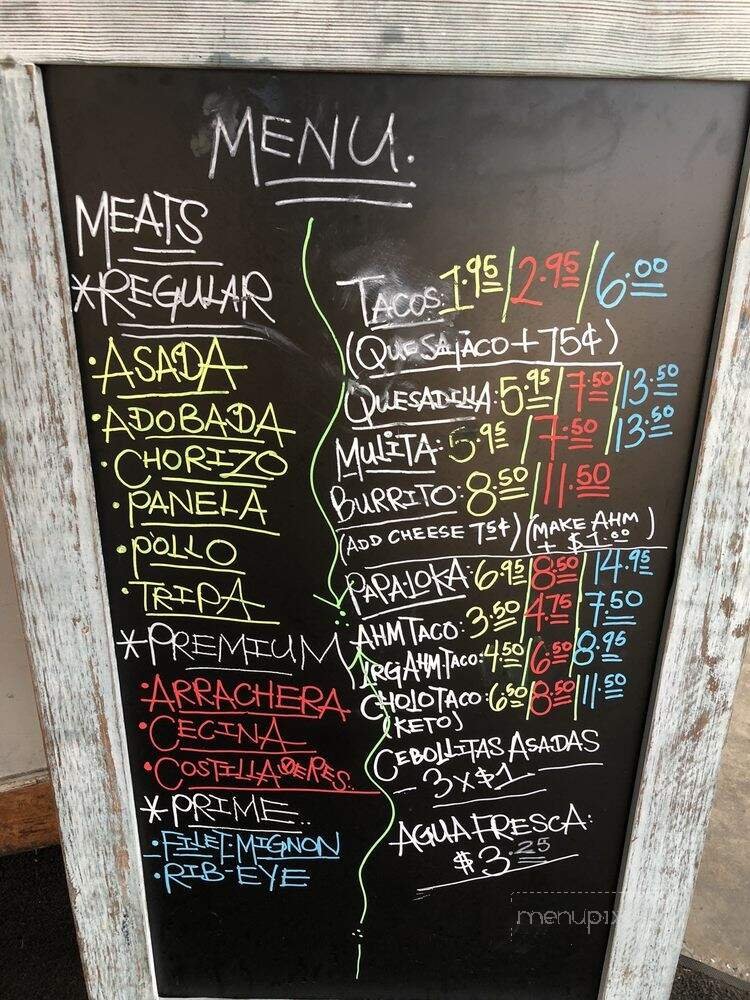 MENU.
MEATS
*REGULAR
•ASADA
•ADOBADA
•CHORIZO
•PANELA
•POLLO
•TRIPA
*PREMIUM
•ARRACHERA
•CECINA
*PRIME..
•FILET-MIGNON
•RIB-EYE
TACOS: 1.95/2.95/6.00
(QUESATACO+75¢)
QUESADILLA: 5.95/7.50/13.50
MULITA: 5.95/7.50/13.50
BURRITO: 8.50/11.50
(ADD CHEESE 75¢) (MAKE AHM
+ $1.00)
PAPALOKA: 6.95/8.50/14.95
AHMTACO: 3.50/4.75/7.50
LRGAHMTACO: 4.50/6.50/8.95
CHOLOTACO: 6.50/8.50/11.50
(KETO)
CEBOLLITAS ASADAS
3X$1
AGUA FRESCA:
$3.25
menupix